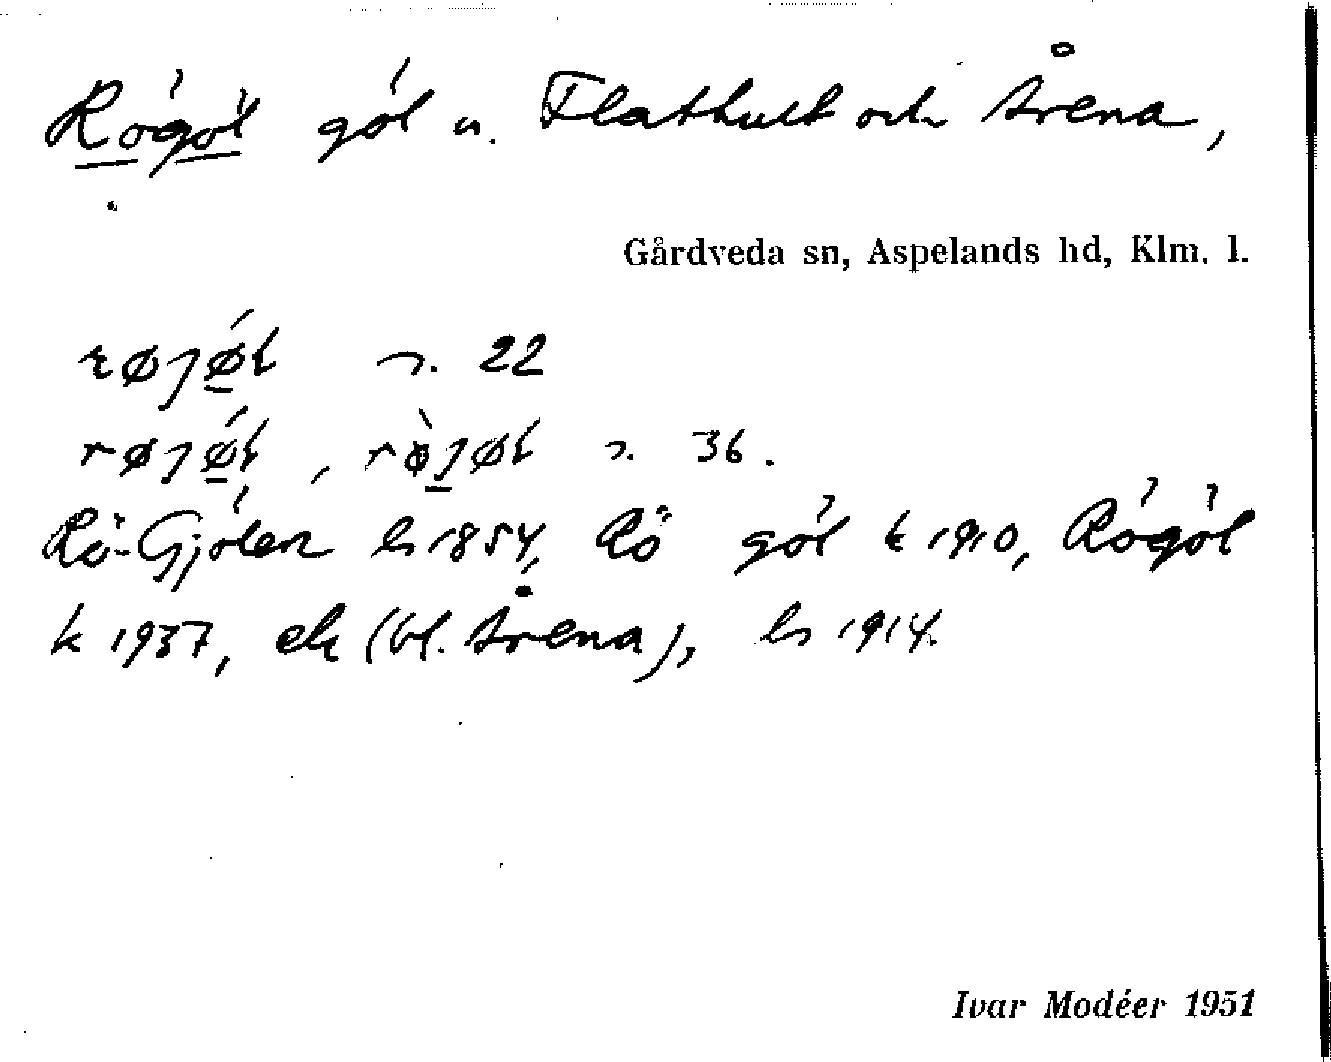 Rögöl göl u. Flathult och Årena,
Gårdveda sn, Aspelands hd, Klm. l.
røjǿl n. 22
røjǿl, rø̀jøl n. 36.
Rö-Gjölen hs 1854, Rö göl k 1910, Rögöl
k 1937, ek (bl. Årena), hs 1914.
Ivar Modéer 1951